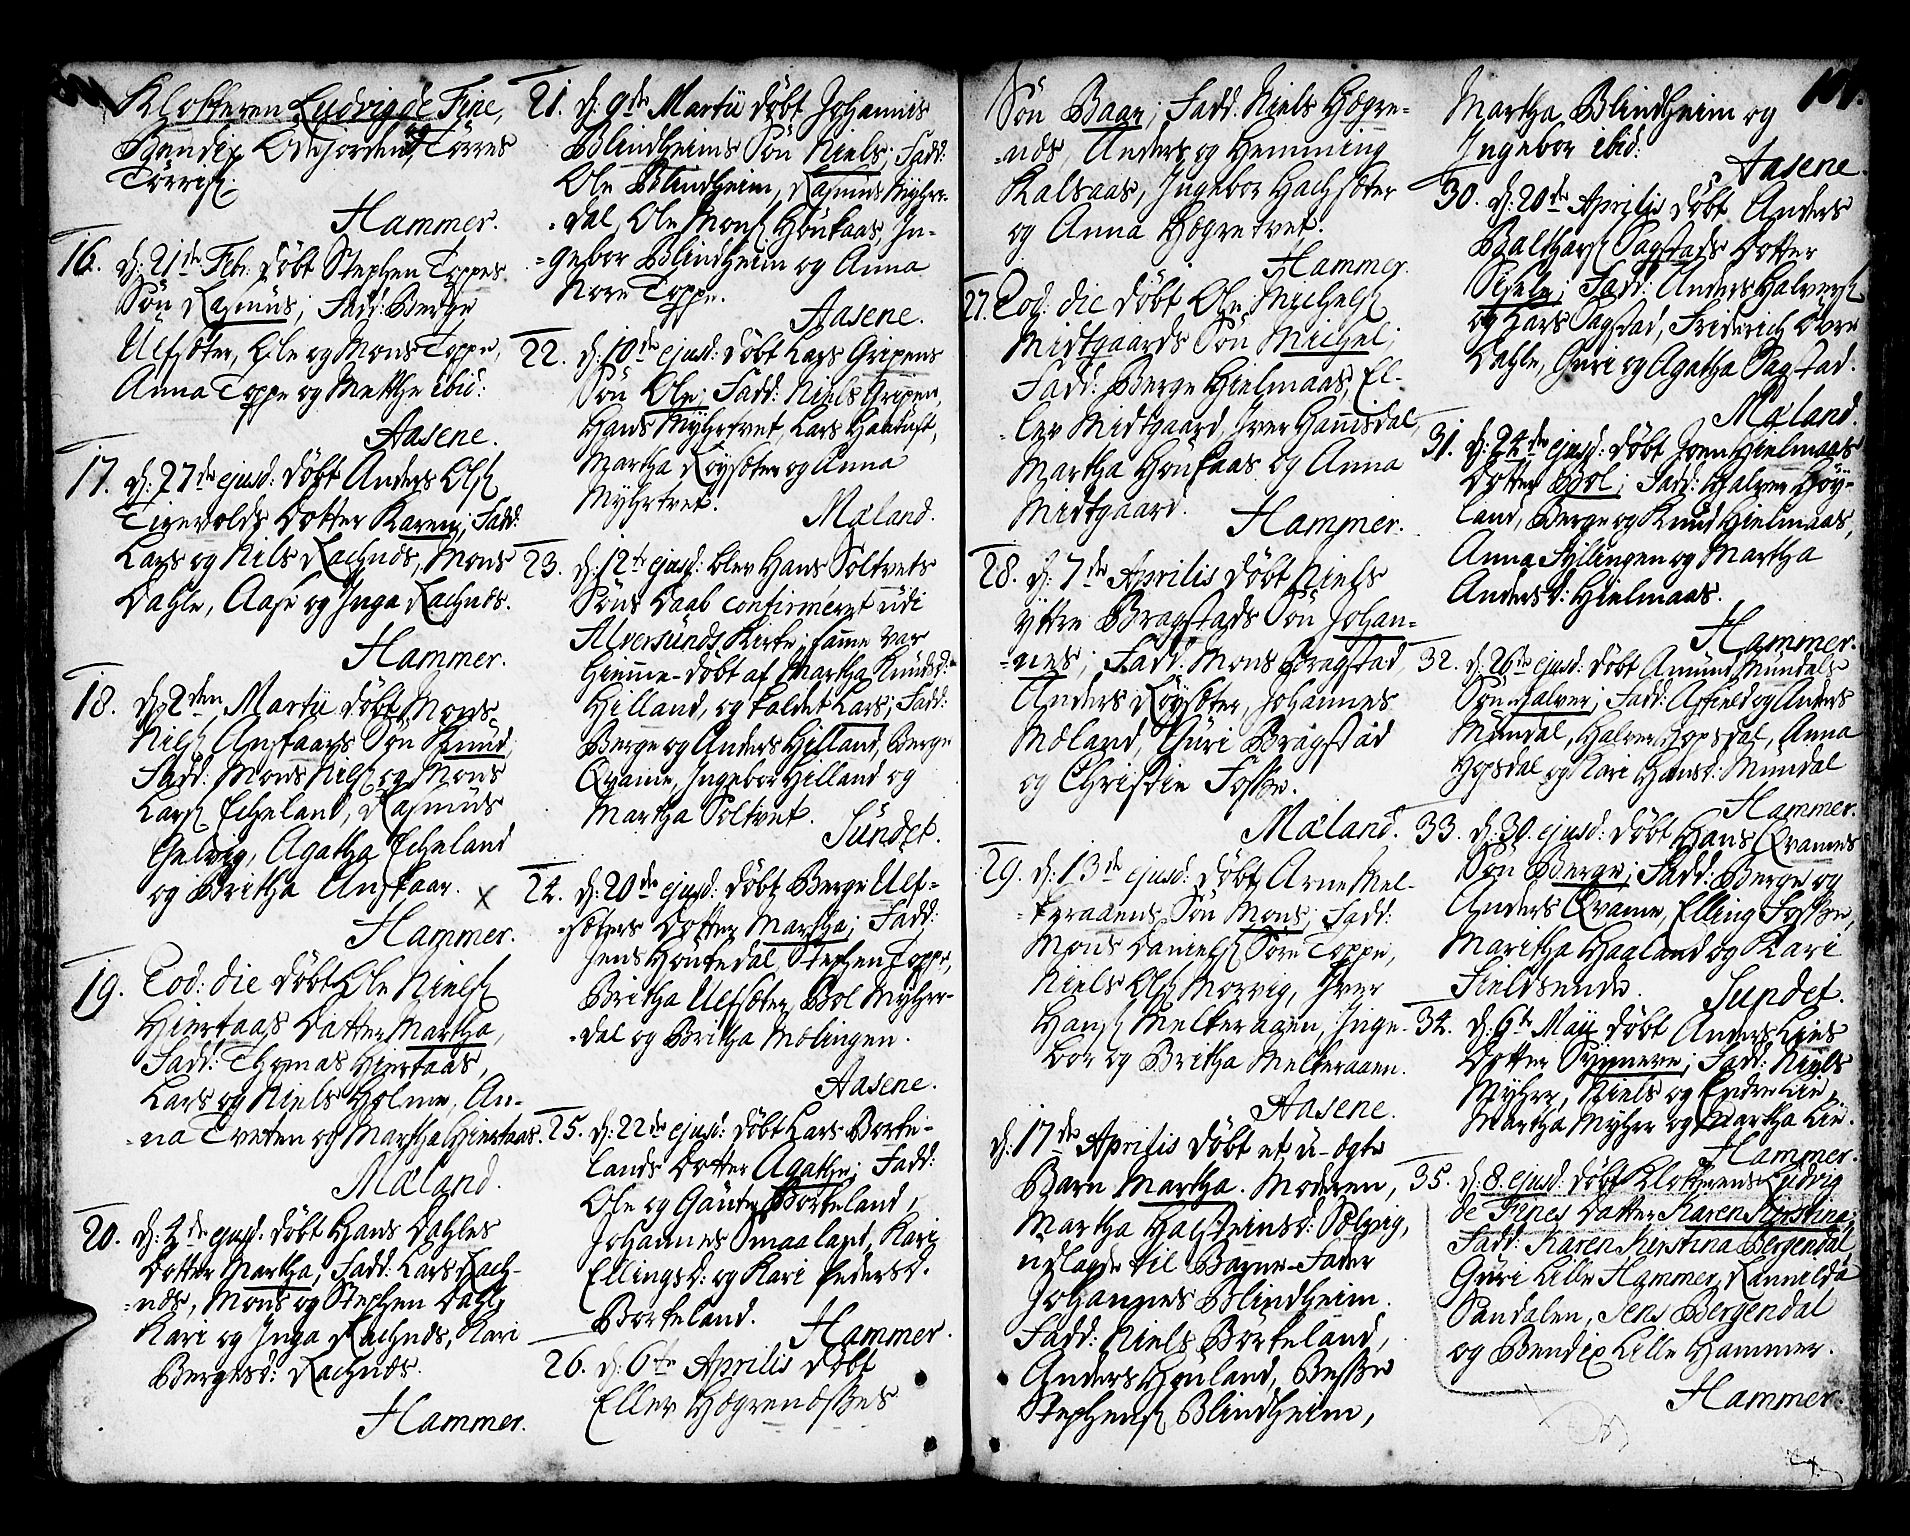 Klokkeren Ludvig de Fine,
Bendix Odfjorden, og Törres
Törris.
Hammer.
16. d: 21de Febr: döbt Stephen Toppes
Sön Rasmus; Fadd: Berge
Ulfsæter, Ole og Mons Toppe,
Anna Toppe og Metthe ibid:
Aasene.
17. d: 27de ejusd: döbt Anders Ols.
Dotter Karen; Fadd:
Lars og Nils Rachnes, Mons
Dahle, Aase og Inga Rachnes.
Hammer.
18. d: 2den Martii döbt Mons
Nils. Anskaars Sön Knud;
Fadd: Mons Nils. og Mons
Lars. Echeland, Rasmus
Gelvig, Agatha Echeland
og Britha Anskaar. x
Hammer.
19. Eod: die döbt Ole Niels.
Hiertaas Datter Martha,
Fadd: Thomas Hiertaas,
Lars og Niels Holme, An-
na Tveten og Martha Hiertaas.
Mæland.
20. d: 4de ejusd. döbt Hans Dahles
Dotter Martha; Fadd: Lars Rach-
nes, Mons og Stephen Dahle
Kari og Inga Rachnes, Kari
Bergesd: Rachnes.
Hammer.
21. d: 9de Martii döbt Johannis
Blindheims Sön Niels; Fadd:
Ole Blindheim, Rasmus Myhre-
dal, Ole Mons. Hönkaas, In-
gebor Blindheim og Anna
Nore Toppe.
Aasene.
22. d: 10de ejusd: döbt Lars Gripens
Sön Ole; Fadd: Niels Gripen,
Hans Myhrtvet, Lars Haatuft,
Martha Röysæter og Anna
Myhrtvet.
Mæland.
23. d: 12te ejusd: blev Hans Soltvets
Söns Daab confirmeret udi
Alversunds Kirke; samme var
hiemme-döbt af Martha Knudsd:
Hilland, og kaldet Lars; Fadd:
Berge og Anders Hilland, Berge
Qvamme, Ingebor Hilland og
Martha Soltvet.
Sundet.
24. d: 20de ejusd: döbt Berge Ulf-
sæters Dotter Martha; Fadd:
Jens Hönkedal, Stephen Toppe,
Britha Ulfsæter, Bol Myhre-
dal og Britha Mælingen.
Aasene.
25. d: 22de ejusd: döbt Lars Borke-
lands Dotter Agathe; Fadd:
Ole og Gaute Borkeland,
Johannes Smaaland, Kari
Ellingsd: og Kari Pedersd.
Borkeland.
Hammer.
26. d: 6te Aprilis döbt
Eller Hogrenæsses
Sön Baar; Fadd: Niels Högre-
næs, Anders og Hemming
Kalsaas, Ingebor Hachsæter
og Anna Högretvet.
Hammer.
27. Eod: die döbt Ole Michels.
Midtgaards Sön Michel;
Fadd: Berge Hielmaas, El-
ler Midtgaard, Iver Hamisdal,
Martha Hönkaas og Anna
Midtgaard.
Hammer.
28. d: 7de Aprilis döbt Niels
Yttre Bragstads Sön Johan-
nes; Fadd: Mons Bragstad,
Anders Röysæter, Johannes
Mæland, Guri Bragstad
og Christie Fosse.
Mæland.
29. d: 13de ejusd: döbt Arne Mel-
keraaens Sön Mons; Fadd:
Mons Daniels. Söre Toppe,
Niels Ols. Morvig, Iver
Hans. Melkeraaen, Inge-
bor og Britha Melkeraaen.
Aasene.
d: 17de Aprilis döbt et u-ægte
Barn Martha. Moderen,
Martha Halsteinsd: Solvig,
udlagde til Barne-Fader
Johannes Blindheim.
Fadd: Niels Börkeland,
Anders Höuland, Besse
Stephens. Blindheim,
Martha Blindheim og
Ingebor ibid:
Aasene.
30. d: 20de Aprilis döbt Anders
Balthars. Sagstads Dotter
Sisele; Fadd: Anders Halvers.
og Lars Sagstad, Friderich Övre
Dahle, Guri og Agatha Sagstad.
Mæland.
31. d: 24de ejusd: döbt Iven Hielmaas
Dotter Bol; Fadd: Halver Höy-
land, Berge og Knud Hielmaas,
Anna Syllingen og Martha
Andersd: Hielmaas.
Hammer.
32. d: 26de ejusd: döbt Amund Mundals
Sön Halver; Fadd: Asfield og Anders
Mundal, Halver Hopsdal, Anna
Hopsdal og Kari Hansd: Mundal
Hammer.
33. d: 30. ejusd: döbt Hans Qvammes
Sön Berge; Fadd: Berge og
Anders Qvame, Elling Fosse,
Maritha Haaland og Kari
Fieldsende.
Sundet.
34. d: 6te Maji döbt Anders Lies
Dotter Synneve; Fadd: Niels
Myhre, Niels og Endre Lie,
Martha Myhre og Martha Lie.
Hammer.
35. d: 8. ejusd: döbt Klokkerens Ludvig
de Fines Datter Karen Kirstina;
Fadd: Karen Kirstina Bergendal,
Guri Lille Hammer, Rannilda
Sandalen, Jens Bergendal
og Bendix Lille Hammer.
Hammer.